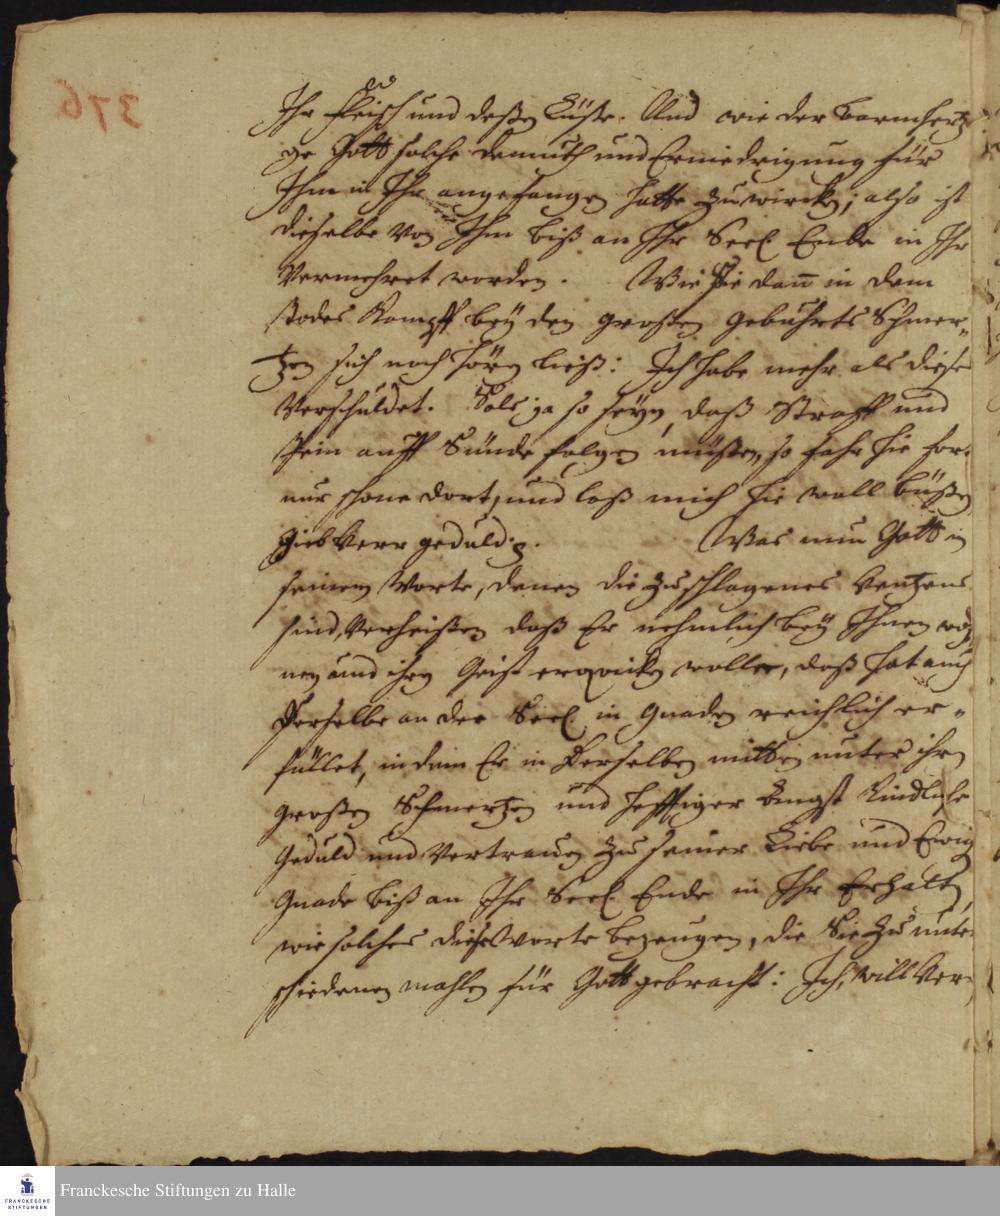 376
Ihr Fleisch und deßen Lüste. Und wie der Barmhertzi
ge Gott solche Demuth und Erniedrigung für
Ihm in Ihr angefangen hatte zu wircken; also ist
dieselbe von Ihm biß an Ihr Seel. Ende in Ihr
Vermehret worden. Wie Sie dan̄ in dem
Todes Kampff bey den großen Gebuhrts Schmer„
tzen sich noch hören ließ: Ich habe mehr als diese
Verschuldet. Sols ja so seyn, daß Straff und
Pein auff Sünde folgen müßen, so fahr hie fort
nur schone dort, und laß mich hie woll büßen
Gieb Herr geduld p. Was nun Gott in
seinem Worte, denen die zuschlagenes Hertzens
sind, Verheißen daß Er nehmlich bey Ihnen woh
nen und ihren Geist erquicken wolle, daß hat auch
Derselbe an der Seel. in Gnaden reichlich er„
füllet, indem Er in Derselben mitten unter ihren
großen Schmertzen und hefftiger Angst Kindliche
Geduld und Vertrauen zu seiner Liebe und Ewig
Gnade biß an Ihr Seel. Ende in Ihr Erhalten,
wie solches diese Worte bezeugen, die Sie zu unter
schiedenen mahlen für Gott gebracht: Ich will Ver„
Franckesche Stiftungen zu Halle
FRANCKESCHE
STIFTUNGEN